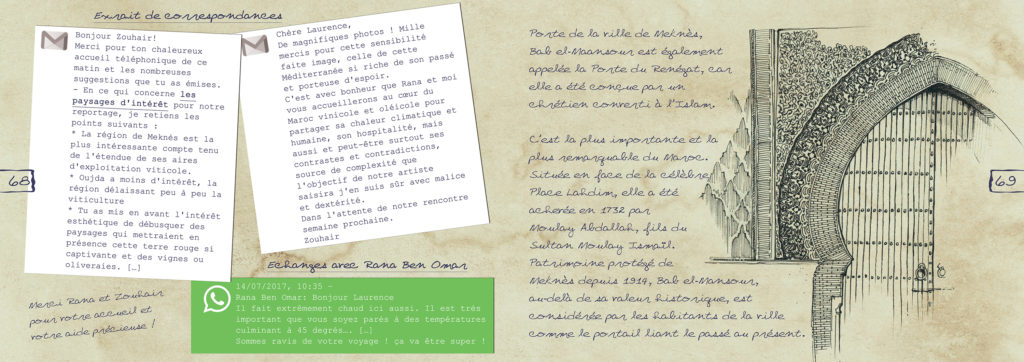 Extrait de correspondances
Bonjour Zouhair!
Merci pour ton chaleureux
accueil téléphonique de ce
matin et les nombreuses
suggestions que tu as émises.
- En ce qui concerne les
paysages d'intérêt pour notre
reportage, je retiens les
points suivants :
* La région de Meknés est la
plus intéressante compte tenu
de l'étendue de ses aires
d'exploitation viticole.
* Oujda a moins d'intérêt, la
région délaissant peu à peu la
viticulture
* Tu as mis en avant l'intérêt
esthétique de débusquer des
paysages qui mettraient en
présence cette terre rouge si
captivante et des vignes ou
oliveraies. […]
68
Merci Rana et Zouhair
pour votre accueil et
votre aide précieuse !
Chère Laurence,
De magnifiques photos ! Mille
mercis pour cette sensibilité
faite image, celle de cette
Méditerranée si riche de son passé
et porteuse d'espoir.
C'est avec bonheur que Rana et moi
vous accueillerons au cœur du
Maroc vinicole et oléicole pour
partager sa chaleur climatique et
humaine, son hospitalité, mais
aussi et peut-être surtout ses
contrastes et contradictions,
source de complexité que
l'objectif de notre artiste
saisira j'en suis sûr avec malice
et dextérité.
Dans l'attente de notre rencontre
semaine prochaine.
Zouhair
Echanges avec Rana Ben Omar
14/07/2017, 10:35 -
Rana Ben Omar: Bonjour Laurence
Il fait extrêmement chaud ici aussi. Il est très
important que vous soyez parés à des températures
culminant à 45 degrés…. […]
Sommes ravis de votre voyage ! ça va être super !
Porte de la ville de Meknès,
Bab el-Maansour est également
appelée la Porte du Renégat, car
elle a été conçue par un
chrétien converti à l'Islam.
C'est la plus importante et la
plus remarquable du Maroc.
Située en face de la célèbre
Place Lahdim, elle a été
achevée en 1732 par
Moulay Abdallah, fils du
Sultan Moulay Ismaïl.
Patrimoine protégé de
Meknès depuis 1914, Bab el-Mansour,
au-delà de sa valeur historique, est
considérée par les habitants de la ville
comme le portail liant le passé au présent.
69